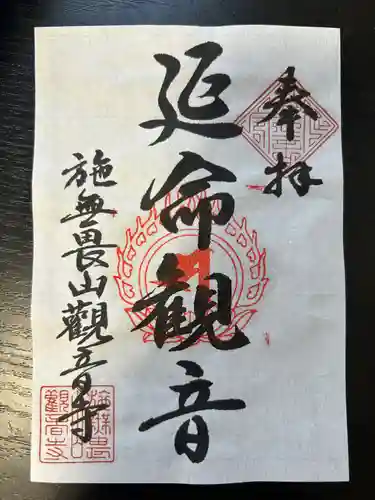 奉拝
延命観音
施無畏山觀音寺